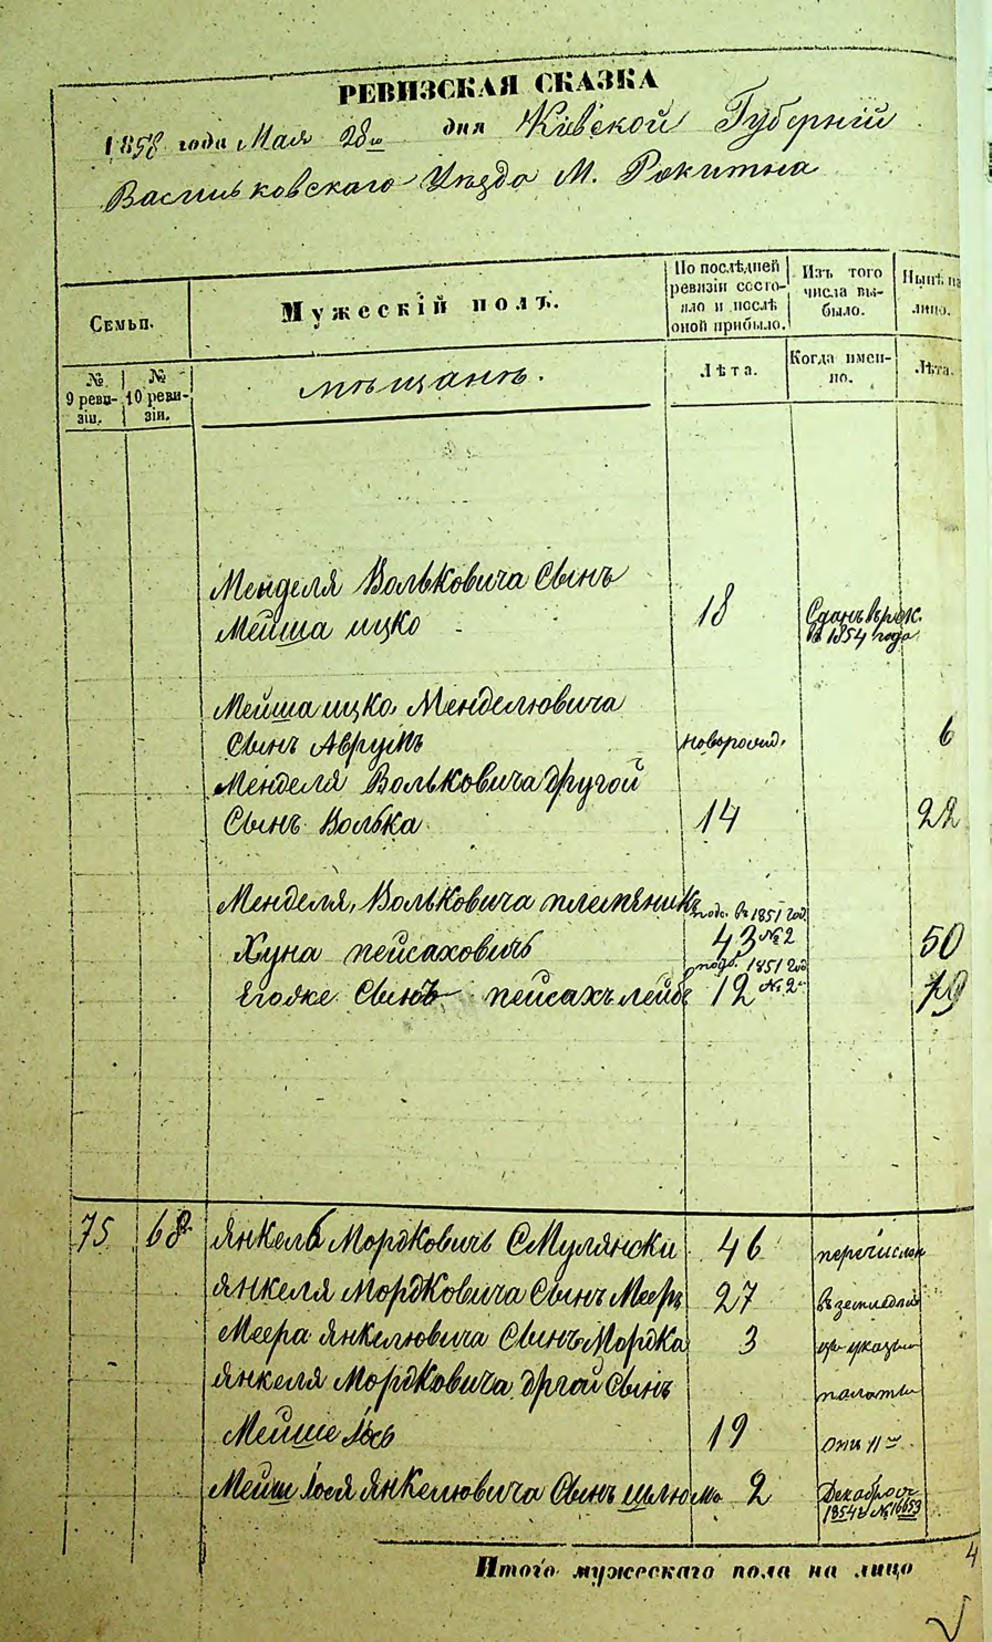 РЕВИЗСКАЯ СКАЗКА
1858 года Мая 28го дня Кіевской Губерніи
Васильковскаго Уѣзда М. Рокитна
Семьи.
Мужескій полъ.
По послѣдней ревизіи состояло и послѣ оной прибыло.
Изъ того числа выбыло.
Нынѣ на лицо.
№ 9 ревизіи.
№ 10 ревизіи.
мѣщанѣ.
Лѣта.
Когда именно.
Лѣта.
Менделя Вольковича Сынъ
Мейша ицко 18 Сданъ в рек. въ 1854 года
Мейша ицко Менделювича
Сынъ Аврумъ новорожд. 6
Менделя Вольковича другой
Сынъ Волька 14 22
Менделя Вольковича племяникъ
подс. въ 1851 год. №2
Хуна пейсаховичъ 43 50
подс. 1851 год №2
Егояже Сынъ пейсахъ лейбъ 12 19
75 68 Янкель Мордковичъ Смулянски 46 перечислен
Янкеля Мордковича Сынъ Мееръ 27
Меера Янкелювича Сынъ Мордка 3 указъ
Янкеля Мордковича дргой Сынъ палаты
Мейше Іось 19 отъ 11го
Мейши Іося Янкелювича Сынъ шлюма 2 Декабря 1854 г №16653
Итого мужескаго пола на лицо 4